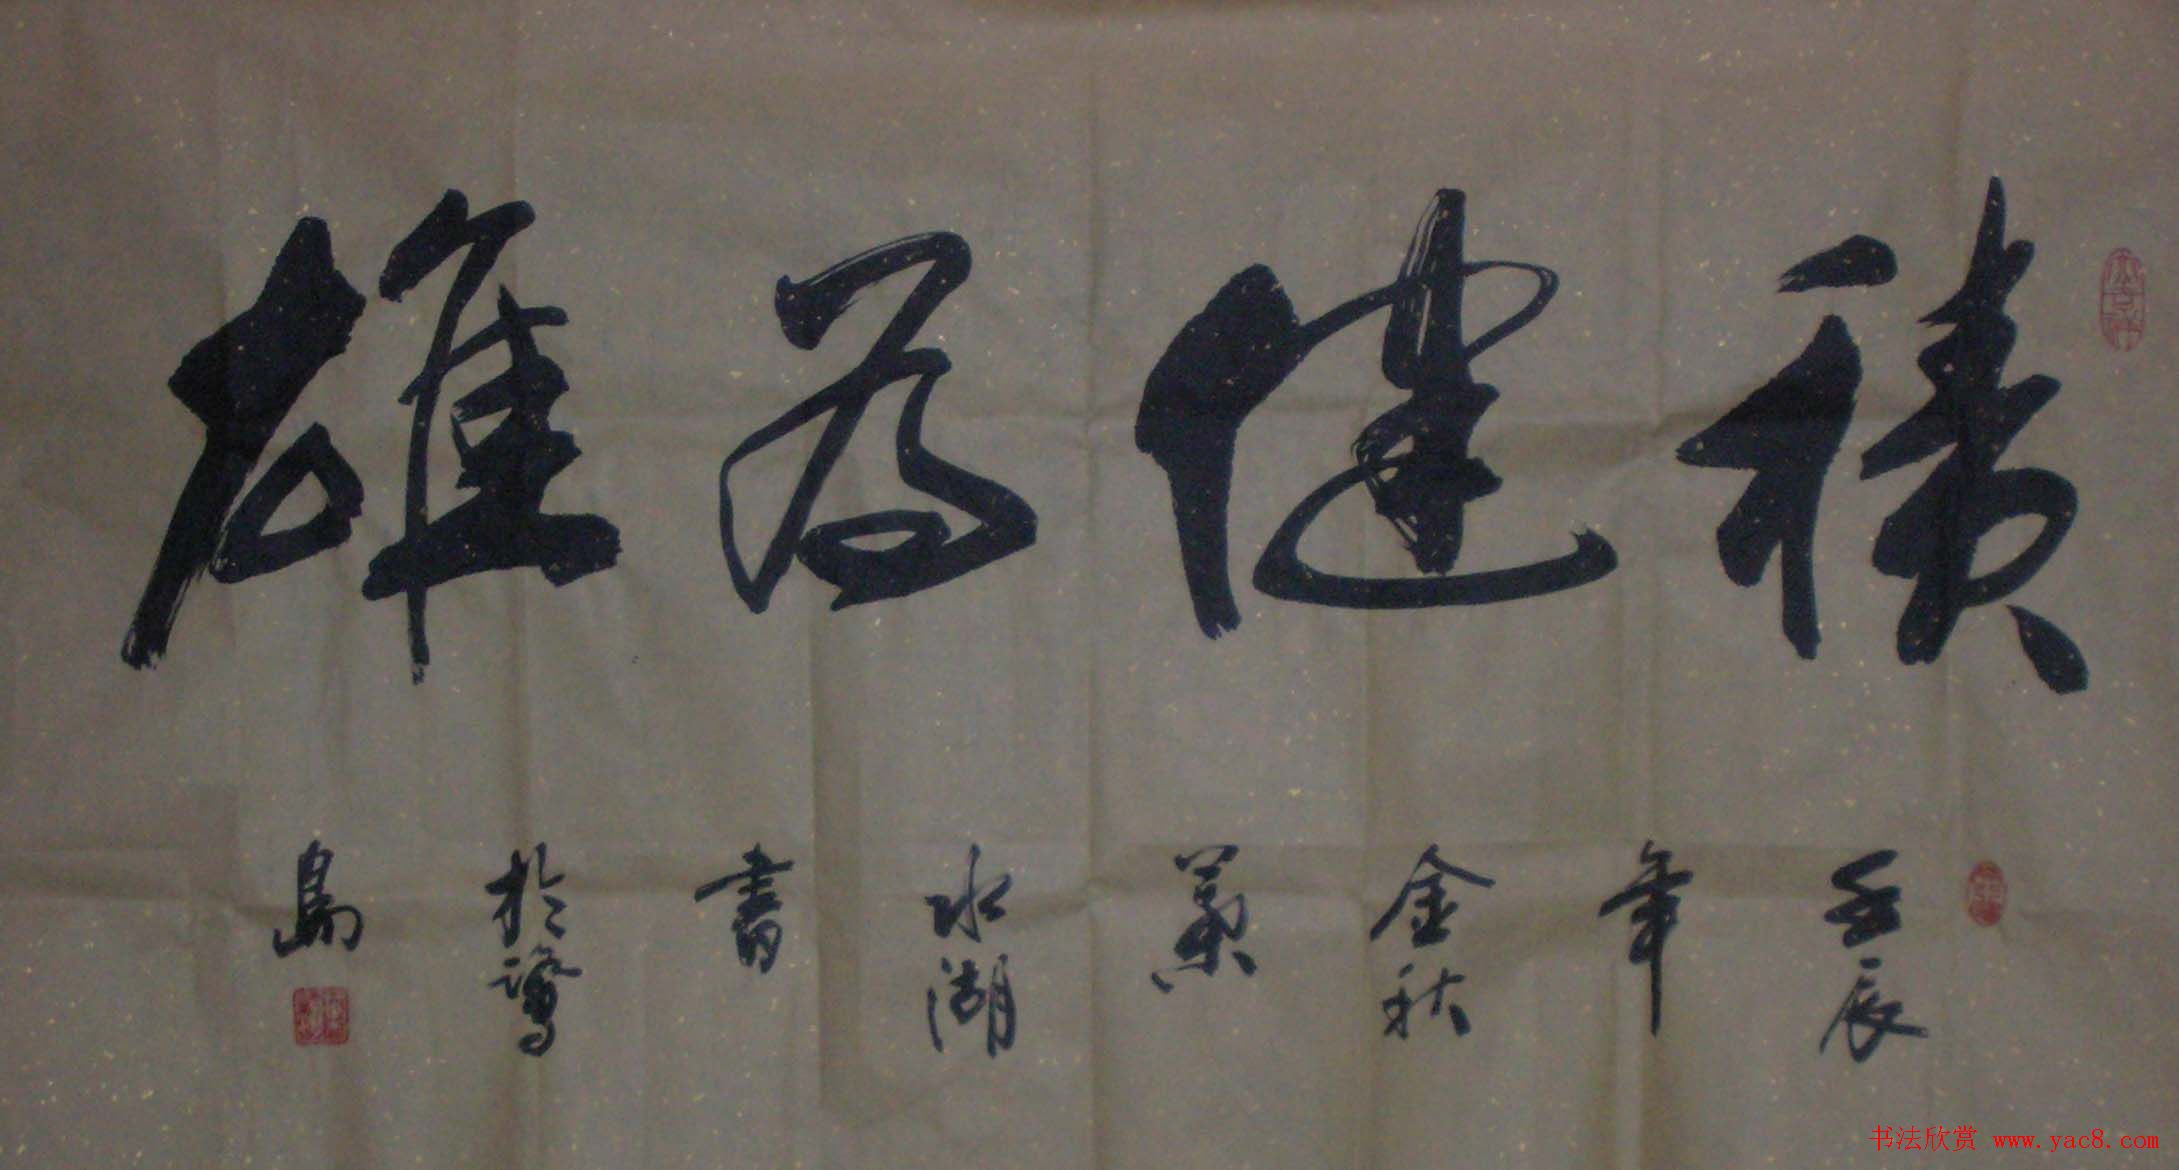 積健为雄
壬辰年金秋叶水湖書於鹭島
书法欣赏 www.yac8.com